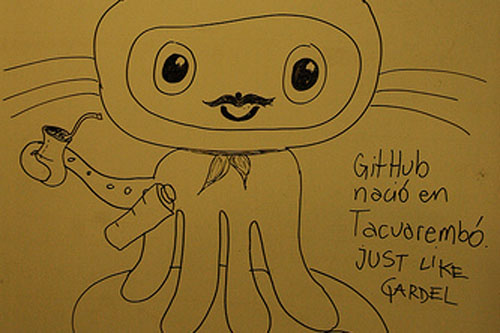 GitHub
nació en
Tacuarembó.
JUST LIKE
GARDEL